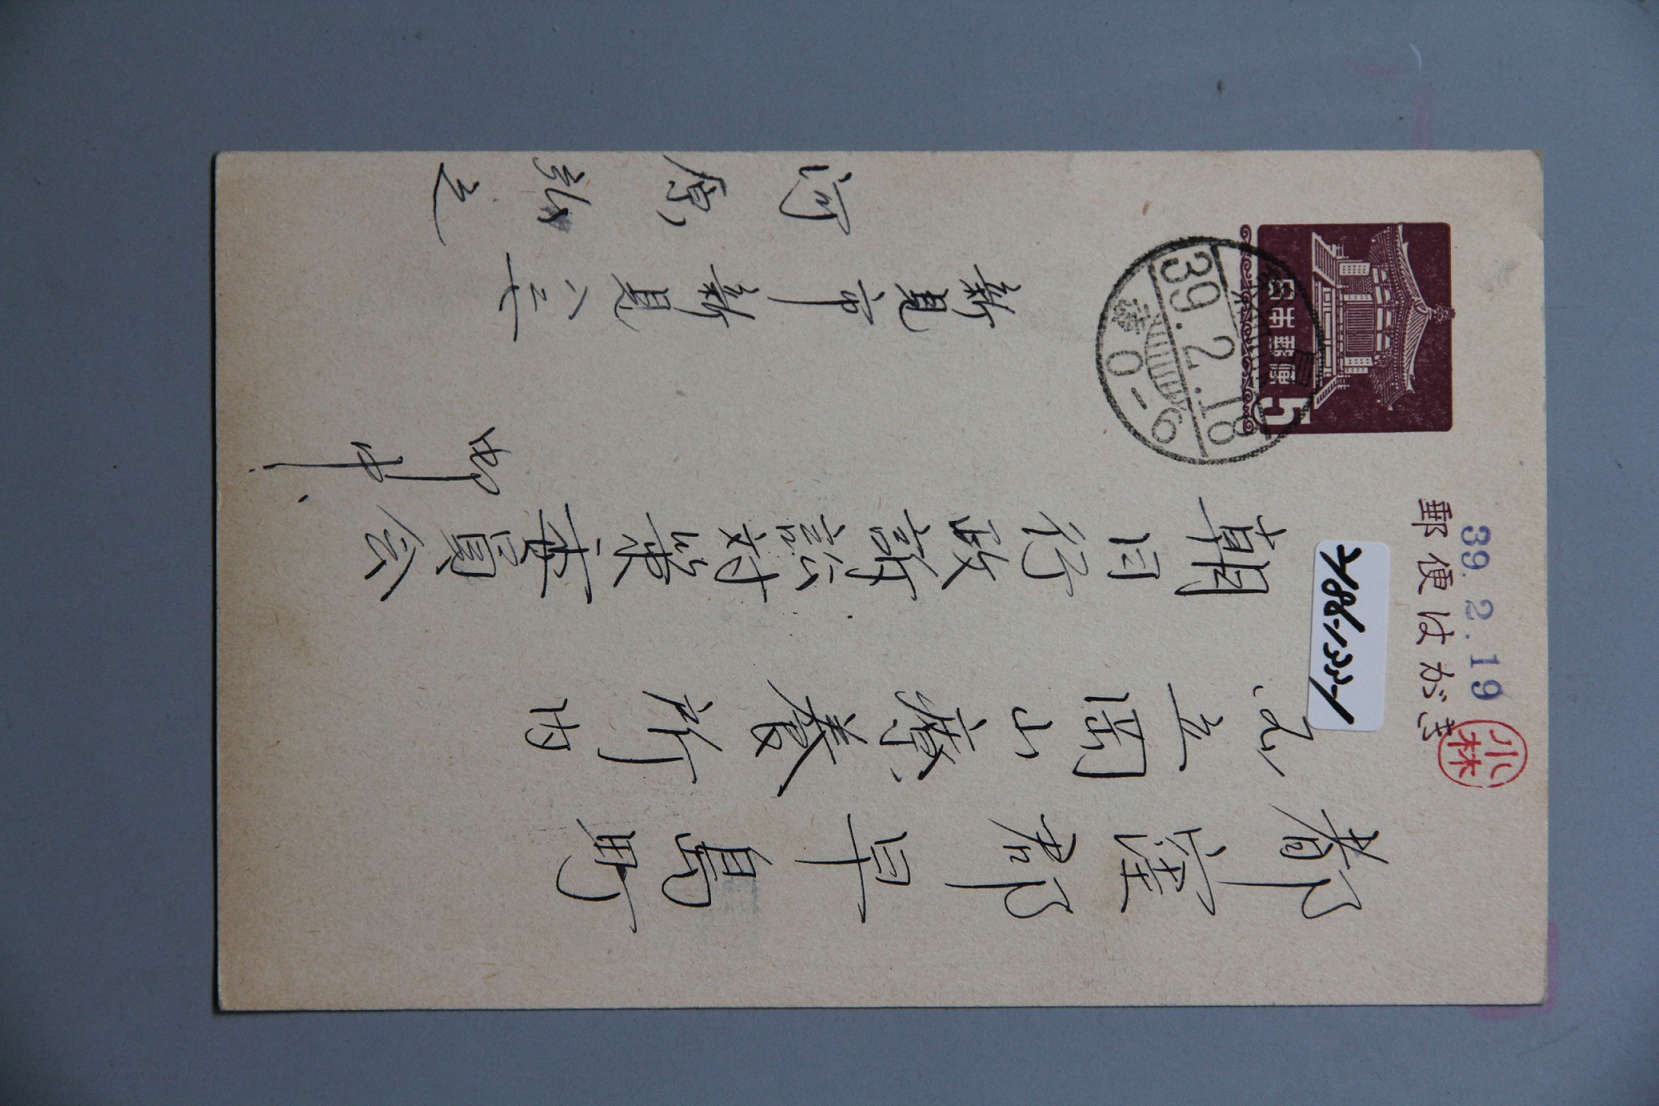 郵便はがき
39.2.19
小林
日本郵便
5
39.2.18
0-6
都窪郡早島町
国立岡山療養所内
朝日行政訴訟対策委員会
御中
新見市新見八三七
河原弘之